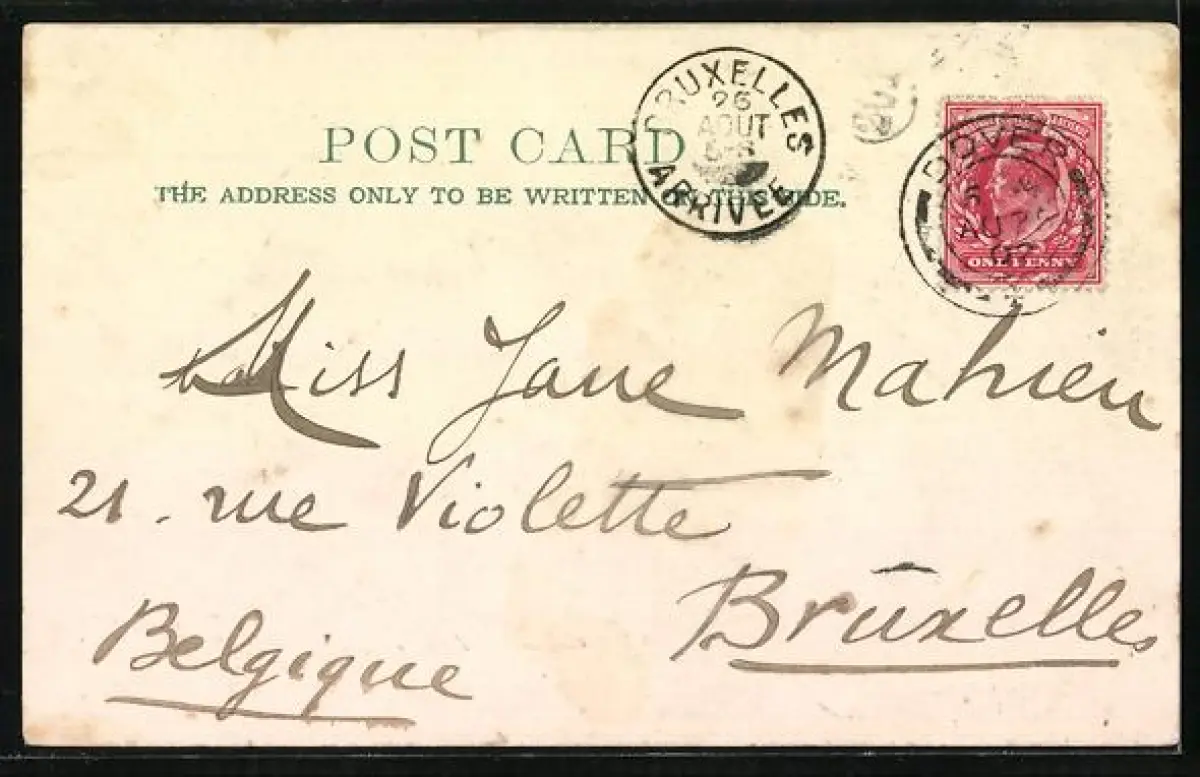 POST CARD
THE ADDRESS ONLY TO BE WRITTEN ON THIS SIDE.
BRUXELLES
26
AOUT
ARRIVEE
DOVER
AU 25
ONE PENNY
Miss Jane Mahieu
21. rue Violette
Bruxelles
Belgique